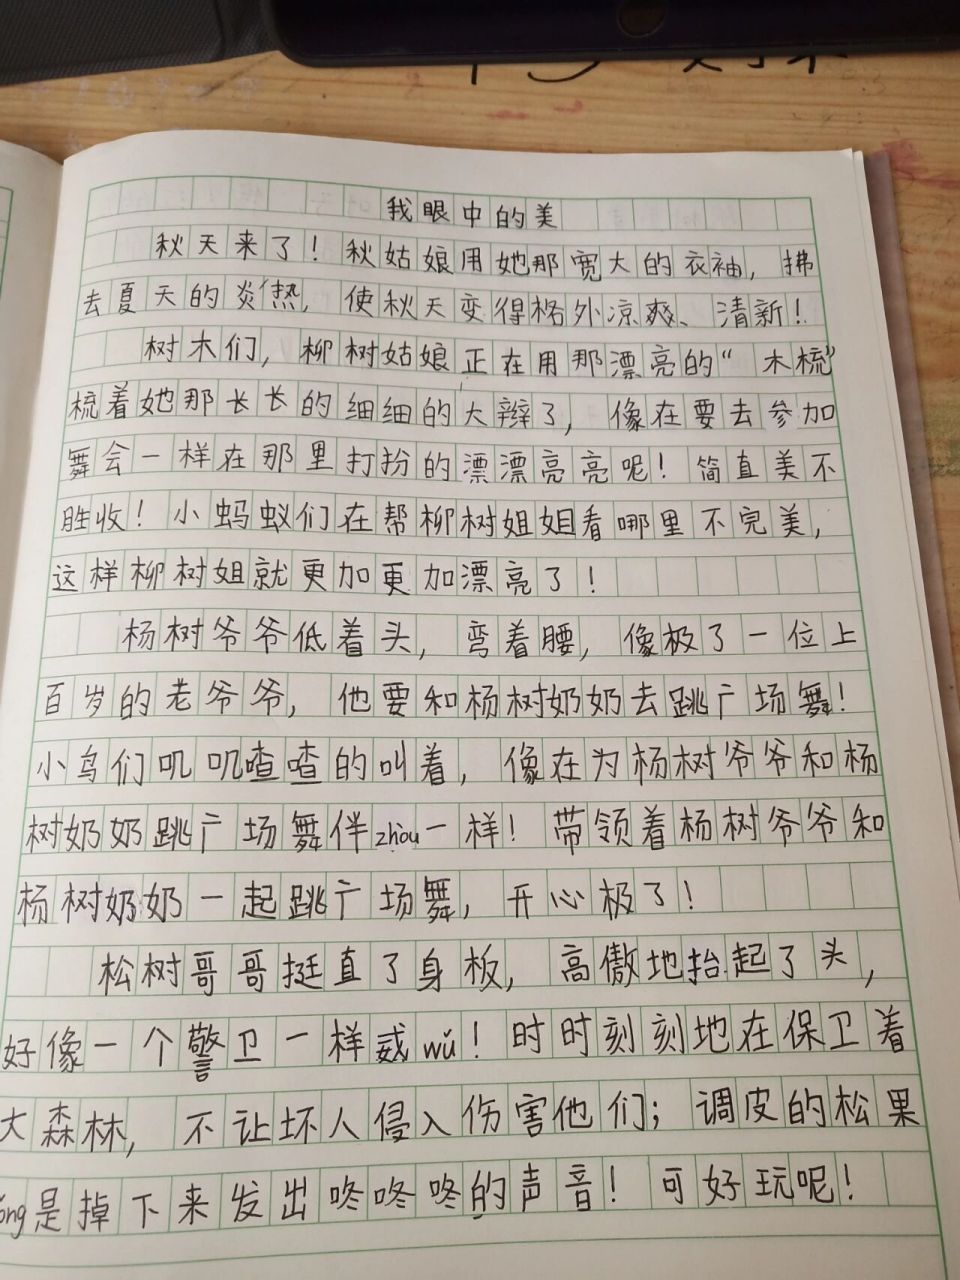 我眼中的美
秋天来了！秋姑娘用她那宽大的衣袖，拂
去夏天的炎热，使秋天变得格外凉爽、清新！
树木们，柳树姑娘正在用那漂亮的“木梳”
梳着她那长长的细细的大辫了，像在要去参加
舞会一样在那里打扮的漂漂亮亮呢！简直美不
胜收！小蚂蚁们在帮柳树姐姐看哪里不完美，
这样柳树姐就更加更加漂亮了！
杨树爷爷低着头，弯着腰，像极了一位上
百岁的老爷爷，他要和杨树奶奶去跳广场舞！
小鸟们叽叽喳喳的叫着，像在为杨树爷爷和杨
树奶奶跳广场舞伴zhòu一样！带领着杨树爷爷和
杨树奶奶一起跳广场舞，开心极了！
松树哥哥挺直了身板，高傲地抬起了头，
好像一个警卫一样威wǔ！时时刻刻地在保卫着
大森林，不让坏人侵入伤害他们；调皮的松果
是掉下来发出咚咚咚的声音！可好玩呢！